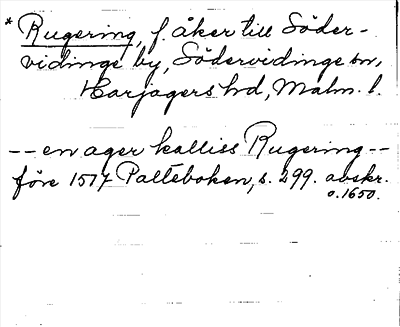 * Rugering, f. åker till Söder-
vidinge by, Södervidinge sn,
Harjagers hd, Malm. l.
-- en ager kalliss Rugering --
före 1517 Palteboken, s. 299. avskr.
o. 1650.